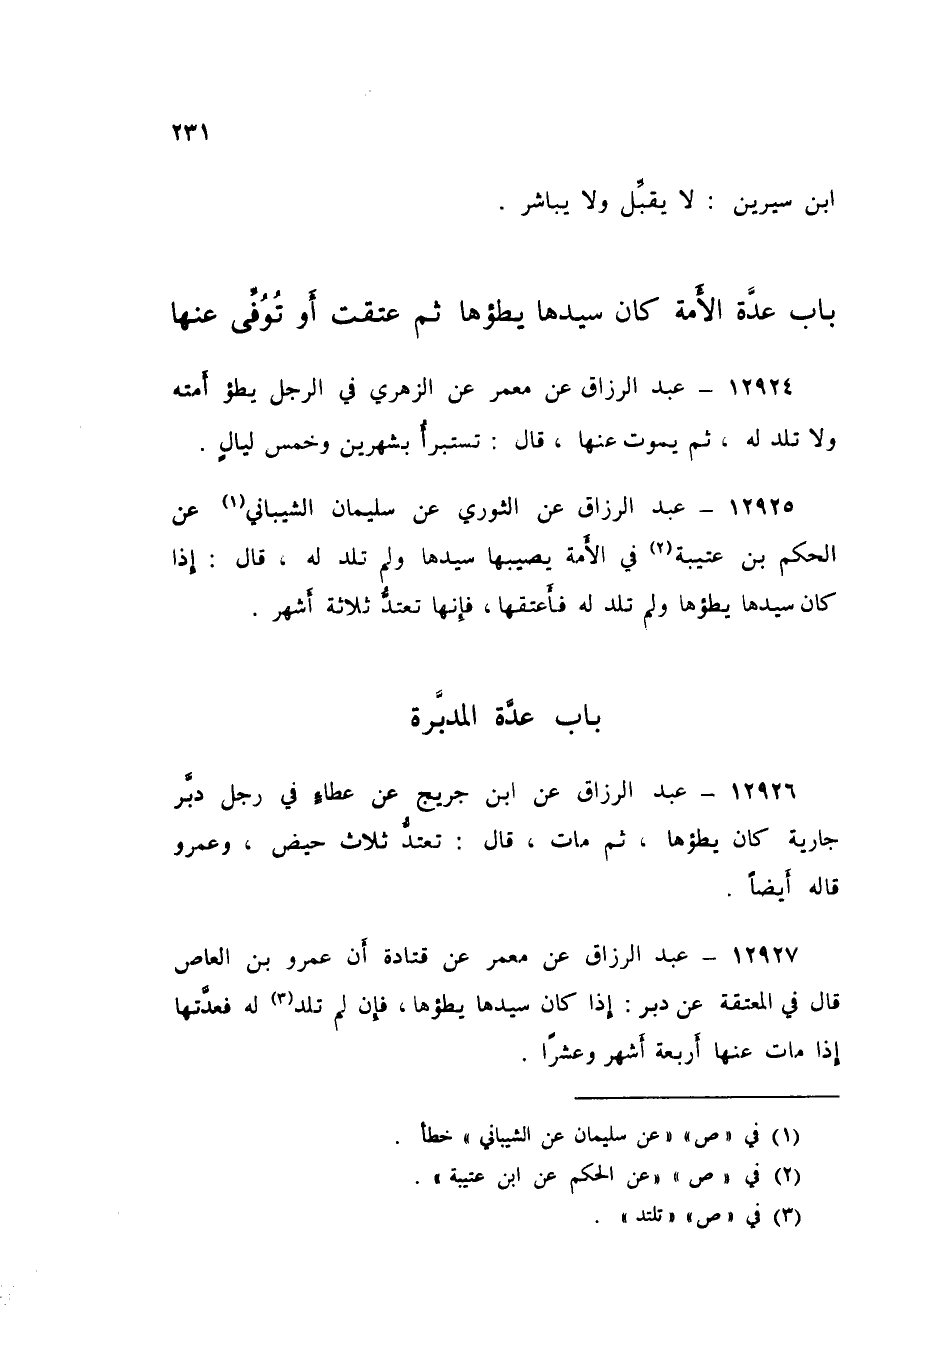 ٢٣١
ابن سيرين : لا يقبِّل ولا يباشر .
باب عدَّة الأَمة كان سيدها يطؤها ثم عتقت أَو تُوُفِّى عنها
١٢٩٢٤ - عبد الرزاق عن معمر عن الزهري في الرجل يطؤ أَمته
ولا تلد له ، ثم يموت عنها ، قال : تستبرأُ بشهرين وخمس ليالٍ .
١٢٩٢٥ - عبد الرزاق عن الثوري عن سليمان الشيباني(١) عن
الحكم بن عتيبة(٢) في الأَمة يصيبها سيدها ولم تلد له ، قال : إذا
كان سيدها يطؤها ولم تلد له فأَعتقها ، فإنها تعتدُّ ثلاثة أَشهر .
باب عدَّة المدبَّرة
١٢٩٢٦ - عبد الرزاق عن ابن جريج عن عطاءٍ في رجل دبَّر
جارية كان يطؤها ، ثم مات ، قال : تعتدُّ ثلاث حيض ، وعمرو
قاله أَيضاً .
١٢٩٢٧ - عبد الرزاق عن معمر عن قتادة أَن عمرو بن العاص
قال في المعتقة عن دبر : إذا كان سيدها يطؤها ، فإن لم تلد(٣) له فعدَّتها
إذا مات عنها أَربعة أَشهر وعشرًا .
(١) في « ص » « عن سليمان عن الشيباني » خطأ .
(٢) في « ص » « عن الحكم عن ابن عتيبة » .
(٣) في « ص » « تلتد » .